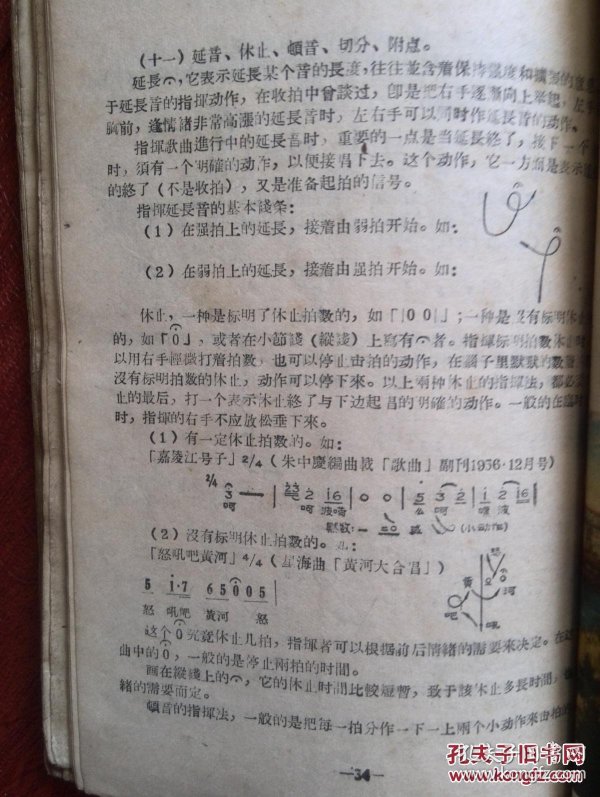 (十一) 延音、休止、頓音、切分、附点。
延長⌒,它表示延長某个音的長度,往往並含着保持强度和
于延長音的指揮动作,在收拍中曾談过,卽是把右手逐漸向上举起,左手
胸前,逢情緖非常高漲的延長音时,左右手可以同时作延長音的动作。
指揮歌曲進行中的延長音时,重要的一点是当延長終了,接下一个
时,須有一个明確的动作,以便接唱下去。这个动作,它一方面是表示
的終了(不是收拍),又是准备起拍的信号。
指揮延長音的基本綫条:
(1)在强拍上的延長,接着由弱拍开始。如:
(2)在弱拍上的延長,接着由强拍开始。如:
休止,一种是标明了休止拍数的,如「|0 0|」;一种是没有标明休止
的,如「0」,或者在小節綫(縱綫)上寫有⌒者。指揮标明拍数休止时
以用右手輕微打着拍数,也可以停止击拍的动作,在腦子里默默的数
沒有标明拍数的休止,动作可以停下來。以上兩种休止的指揮法,都必
止的最后,打一个表示休止終了与下边起唱的明確的动作。一般的在
时,指揮的右手不应放松垂下來。
(1)有一定休止拍数的。如:
「嘉陵江号子」2/4(朱中慶編曲載「歌曲」副刊1956·12月号)
2/4 3 — | 23 2 16 | 0 0 | 5 3 2 | 1 2 16 |
呵
默数: (小动作)
(2)沒有标明休止拍数的。如:
「怒吼吧黃河」4/4(星海曲「黃河大合唱」)
黃 0 河
吧 吼
5 1·7 6 5 0 0 5
怒 吼吧 黃河 怒
这个0究竟休止几拍,指揮者可以根据前后情緖的需要來决定。在这
曲中的0,一般的是停止兩拍的时間。
画在縱綫上的⌒,它的休止时間比較短暫,致于該休止多長时間,
緖的需要而定。
頓音的指揮法,一般的是把每一拍分作一下一上兩个小动作來击拍
—34—
孔夫子旧书网